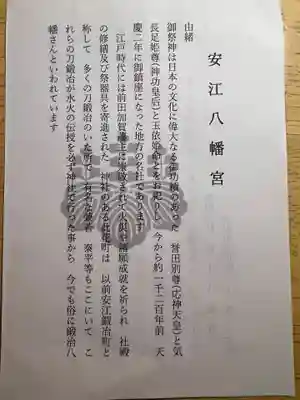 安江八幡宮
由緒
御祭神は日本の文化に偉大なる御功績のあった 誉田別尊(応神天皇)と気
長足姫尊(神功皇后)と玉依姫命とをお祀りし 今から約一千二百年前 天
慶二年に御鎮座になった地方の名社であります
江戸時代には前田加賀藩主に崇敬されて火災や諸願成就を祈られ 社殿
の修繕及び祭器具を寄進された 神社のある此花町は 以前安江鍛冶町と
称して 多くの刀鍛冶のいた町で 有名な兼若 泰平等もここにいて こ
れらの刀鍛冶が水火の伝授を必ず神社で行った事から 今でも俗に鍛冶八
幡さんといわれています